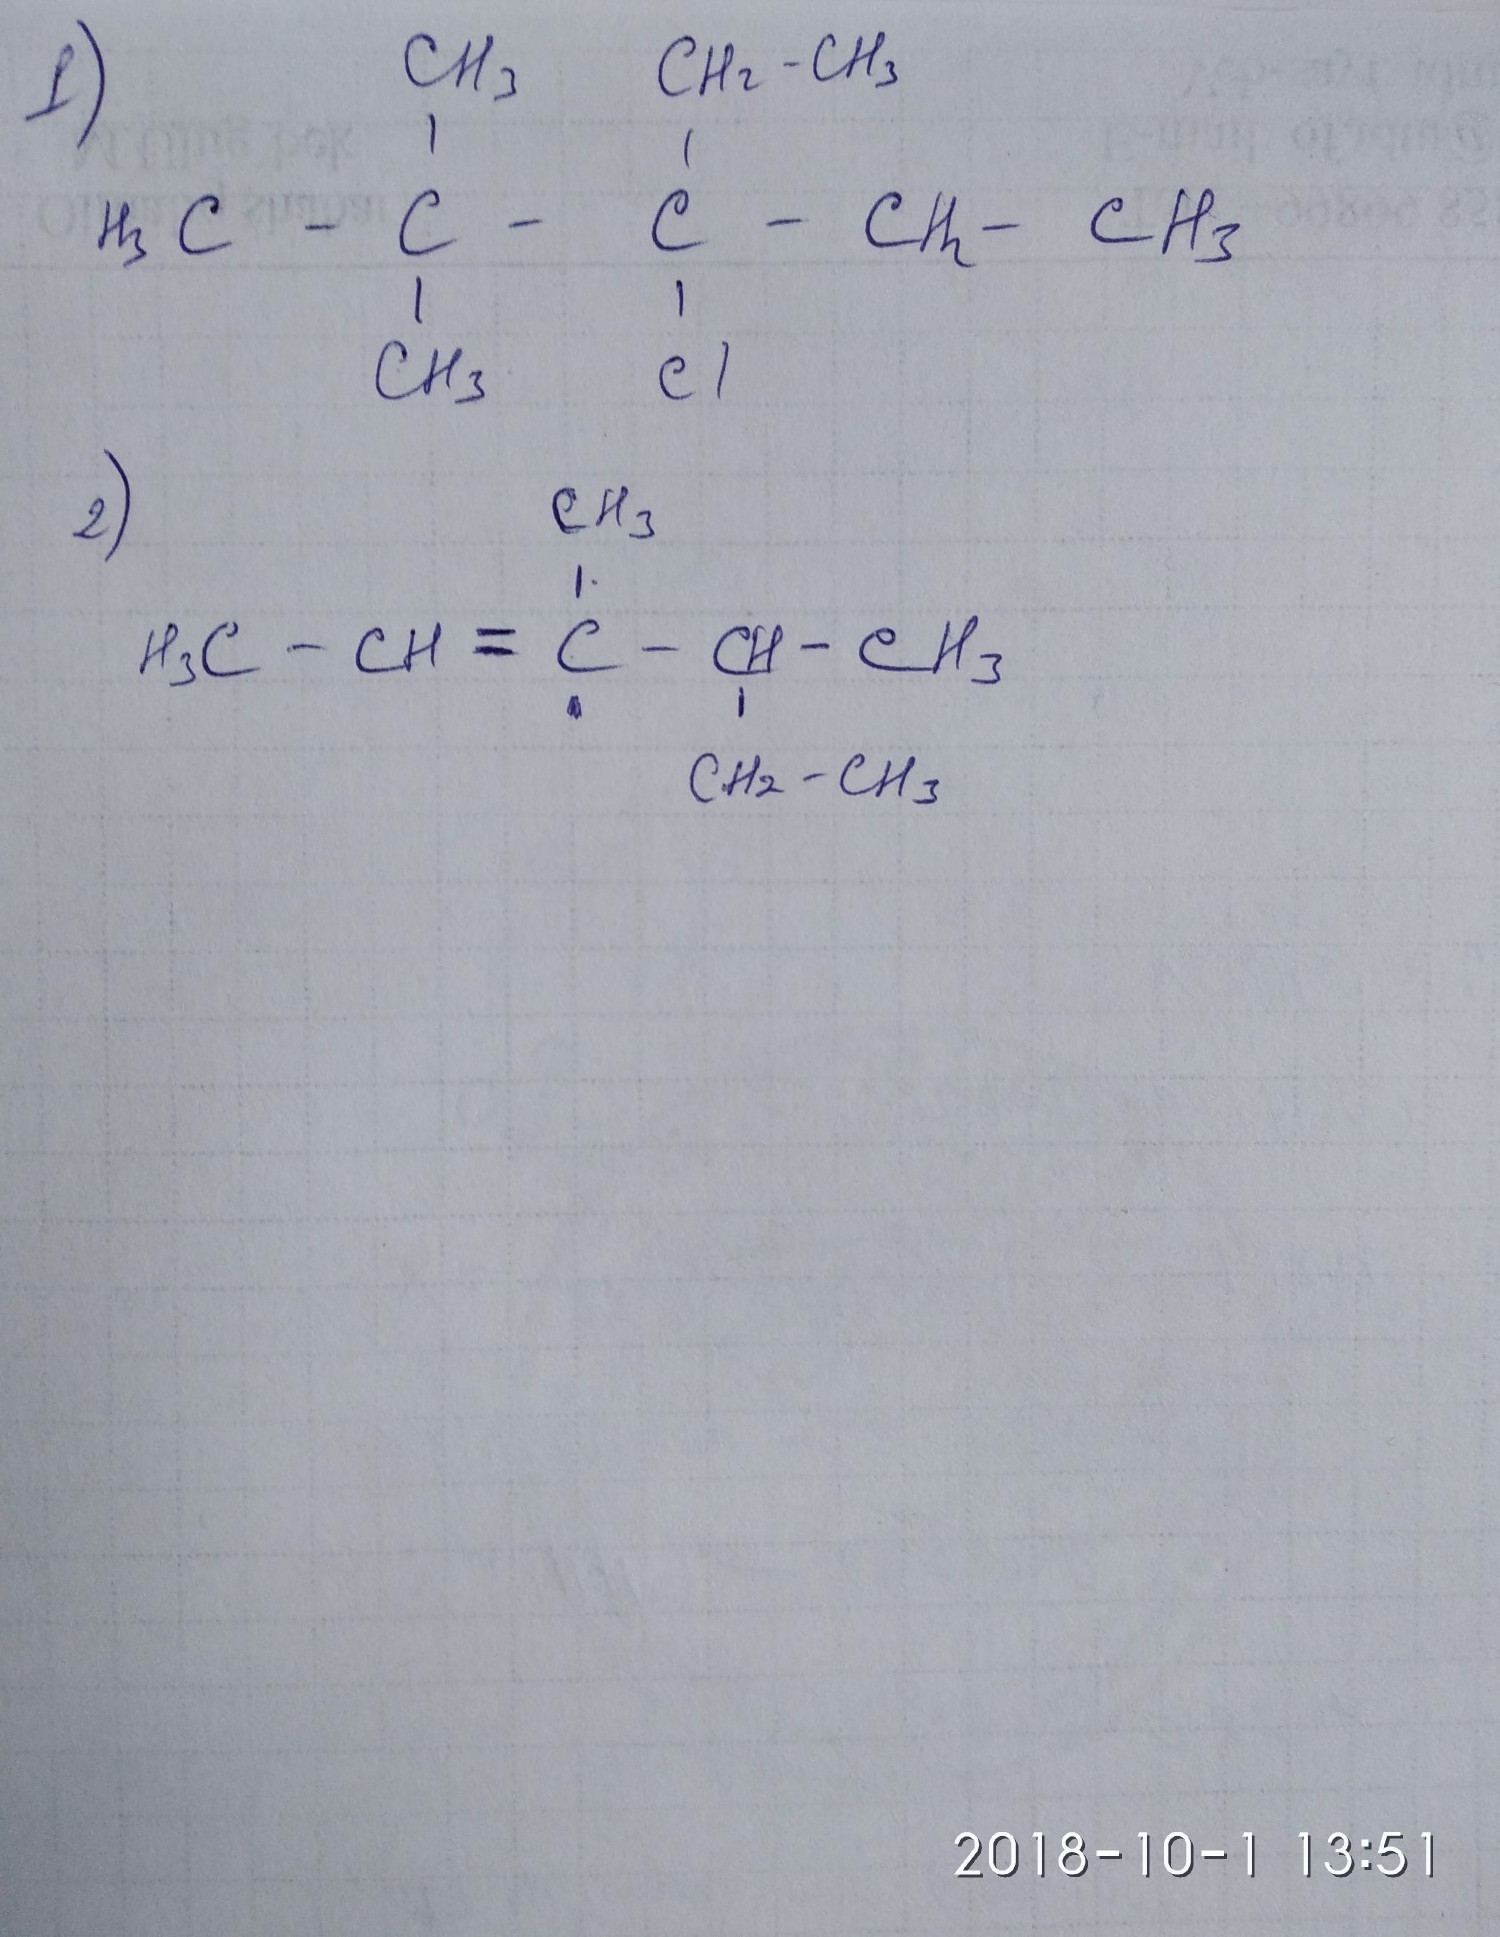 1)
CH3 CH2-CH3
H3C - C - C - CH2 - CH3
CH3 Cl
2)
CH3
H3C - CH = C - CH - CH3
CH2-CH3
2018-10-1 13:51